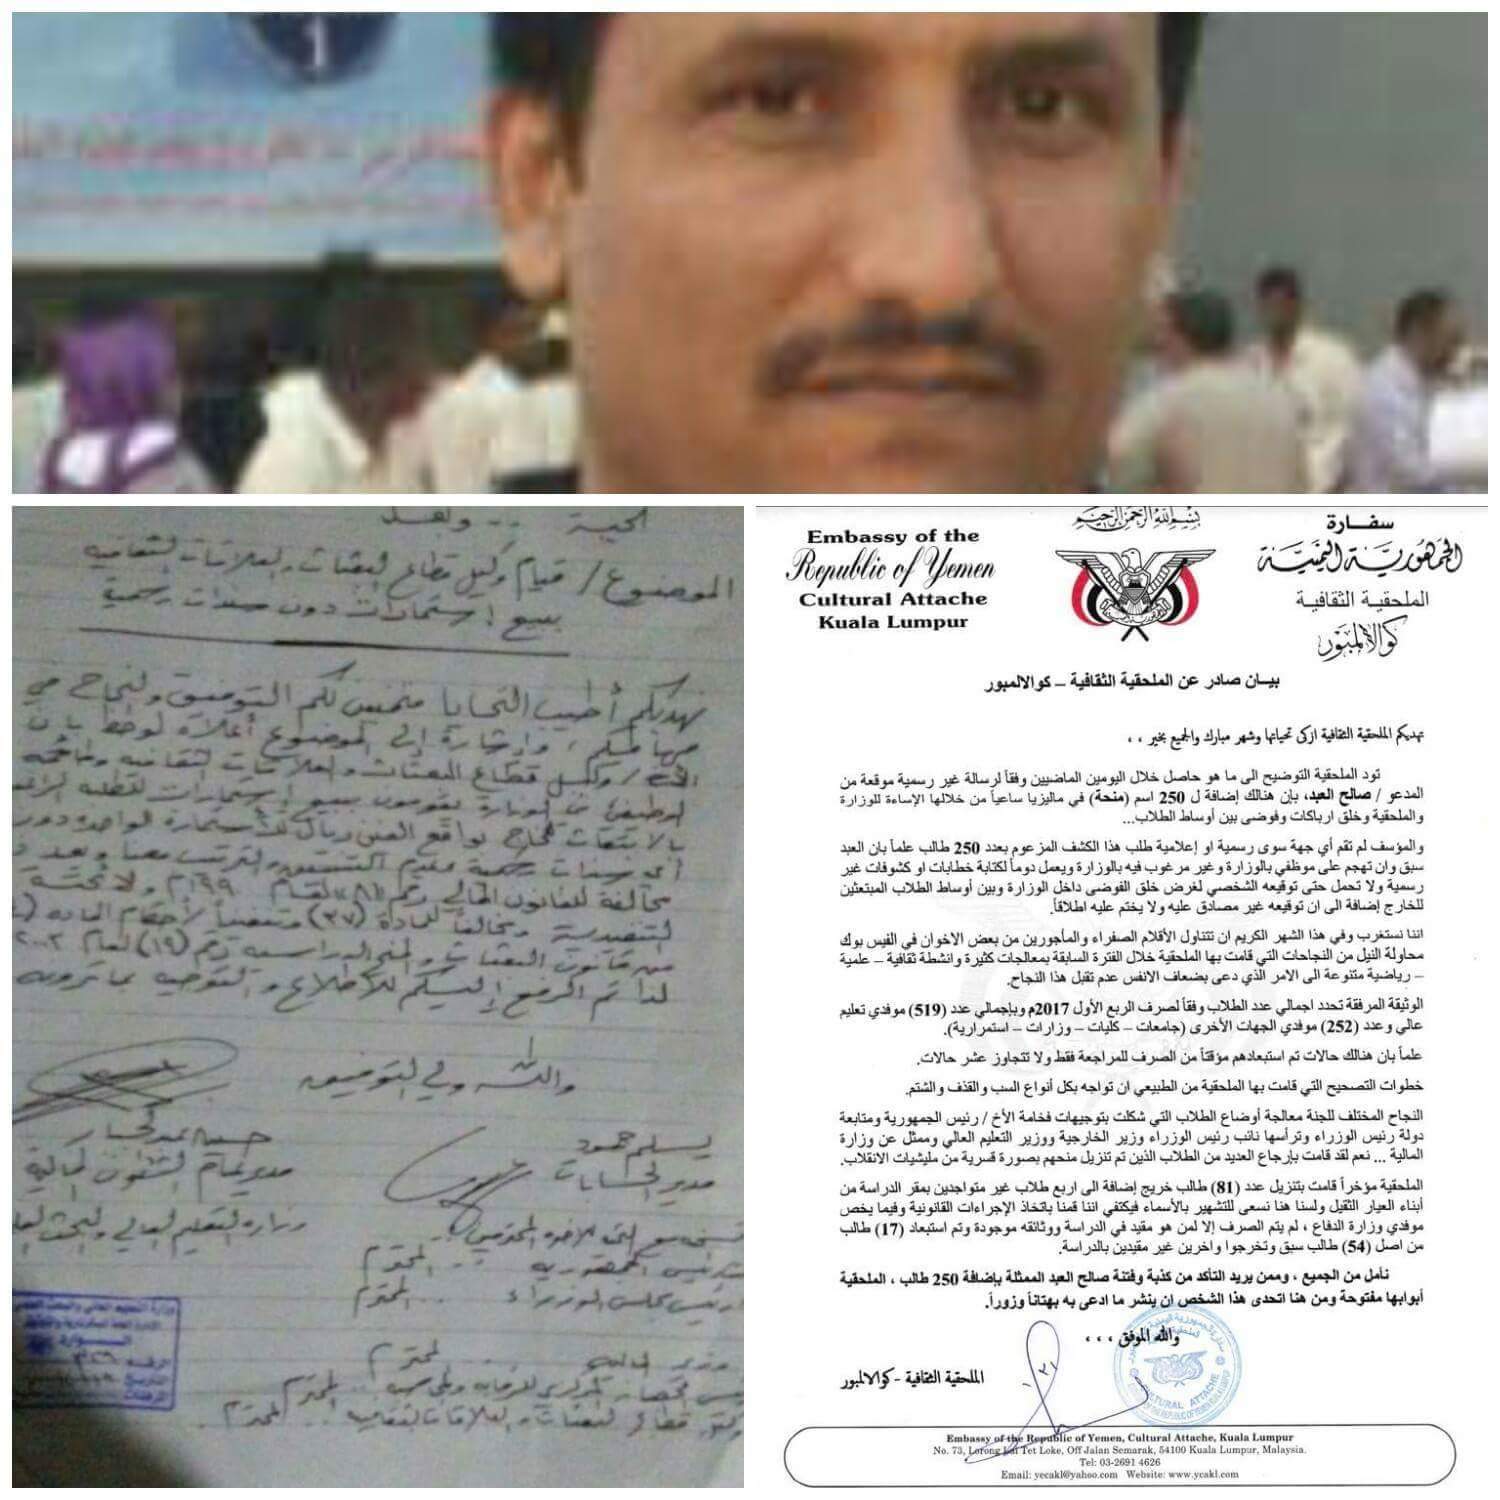 1
التحية .. وبعد
الموضوع / قيام وكيل قطاع البعثات والعلاقات الثقافية
ببيع إستمارات دون سندات رسمية
نهديكم أطيب التحايا متمنين لكم التوفيق والنجاح في
مهامكم ، وإشارة إلى الموضوع أعلاه لوحظ بأن
الأخ / وكيل قطاع البعثات والعلاقات الثقافية
الوزارة يقومون ببيع إستمارات للطلبة
بواقع الفين ريال للأستمارة الواحدة دون
أي سندات رسمية
مخالفة للقانون المالي رقم (8) لعام 1990م ولائحته
التنفيذية ومخالفاً للمادة (37) وتنفيذاً لأحكام المادة
من قانون البعثات والمنح الدراسية رقم (19) لعام 2003
لذا تم الرفع إليكم للأطلاع والتوجيه بما ترونه
والله ولي التوفيق
مدير الحسابات
مدير عام الشئون المالية
وزارة التعليم العالي والبحث
رئيس الجمهورية .. المحترم
رئيس مجلس الوزراء .. المحترم
وزير المالية المحترم
قطاع البعثات والعلاقات الثقافية .. المحترم
Embassy of the
Republic of Yemen
Cultural Attache
Kuala Lumpur
بسم الله الرحمن الرحيم
سفارة
الجمهورية اليمنية
الملحقية الثقافية
كوالالمبور
بيـان صادر عن الملحقية الثقافية – كوالالمبور
تهديكم الملحقية الثقافية ازكى تحياتها وشهر مبارك والجميع بخير ، ،
تود الملحقية التوضيح الى ما هو حاصل خلال اليومين الماضيين وفقاً لرسالة غير رسمية موقعة من
المدعو / صالح العبد، بإن هنالك إضافة ل 250 اسم (منحة) في ماليزيا ساعياً من خلالها الإساءة للوزارة
والملحقية وخلق ارباكات وفوضى بين أوساط الطلاب...
والمؤسف لم تقم أي جهة سوى رسمية او إعلامية طلب هذا الكشف المزعوم بعدد 250 طالب علماً بان العبد
سبق وان تهجم على موظفي بالوزارة وغير مرغوب فيه بالوزارة ويعمل دوماً لكتابة خطابات او كشوفات غير
رسمية ولا تحمل حتى توقيعه الشخصي لغرض خلق الفوضى داخل الوزارة وبين أوساط الطلاب المبتعثين
للخارج إضافة الى ان توقيعه غير مصادق عليه ولا يختم عليه اطلاقاً.
اننا نستغرب وفي هذا الشهر الكريم ان تتناول الأقلام الصفراء والمأجورين من بعض الاخوان في الفيس بوك
محاولة النيل من النجاحات التي قامت بها الملحقية خلال الفترة السابقة بمعالجات كثيرة وانشطة ثقافية – علمية
– رياضية متنوعة الى الامر الذي دعى بضعاف الانفس عدم تقبل هذا النجاح.
الوثيقة المرفقة تحدد اجمالي عدد الطلاب وفقاً لصرف الربع الأول 2017م وبإجمالي عدد (519) موفدي تعليم
عالي وعدد (252) موفدي الجهات الأخرى (جامعات – كليات – وزارات – استمرارية).
علماً بان هنالك حالات تم استبعادهم مؤقتاً من الصرف للمراجعة فقط ولا تتجاوز عشر حالات.
خطوات التصحيح التي قامت بها الملحقية من الطبيعي ان تواجه بكل أنواع السب والقذف والشتم.
النجاح المختلف للجنة معالجة أوضاع الطلاب التي شكلت بتوجيهات فخامة الأخ / رئيس الجمهورية ومتابعة
دولة رئيس الوزراء وترأسها نائب رئيس الوزراء وزير الخارجية ووزير التعليم العالي وممثل عن وزارة
المالية ... نعم لقد قامت بإرجاع العديد من الطلاب الذين تم تنزيل منحهم بصورة قسرية من مليشيات الانقلاب.
الملحقية مؤخراً قامت بتنزيل عدد (81) طالب خريج إضافة الى اربع طلاب غير متواجدين بمقر الدراسة من
أبناء العيار الثقيل ولسنا هنا نسعى للتشهير بالأسماء فيكتفي اننا قمنا باتخاذ الإجراءات القانونية وفيما يخص
موفدي وزارة الدفاع ، لم يتم الصرف إلا لمن هو مقيد في الدراسة ووثائقه موجودة وتم استبعاد (17) طالب
من اصل (54) طالب سبق وتخرجوا واخرين غير مقيدين بالدراسة.
نأمل من الجميع ، وممن يريد التأكد من كذبة وفتنة صالح العبد الممثلة بإضافة 250 طالب ، الملحقية
أبوابها مفتوحة ومن هنا اتحدى هذا الشخص ان ينشر ما ادعى به بهتاناً وزوراً.
والله الموفق ، ، ،
الملحقية الثقافية -كوالالمبور
CULTURAL ATTACHE
Embassy of the Republic of Yemen, Cultural Attache, Kuala Lumpur
No. 73, Lorong Kai Tet Loke, Off Jalan Semarak, 54100 Kuala Lumpur, Malaysia.
Tel: 03-2691 4626
Email: yecakl@yahoo.com Website: www.ycakl.com